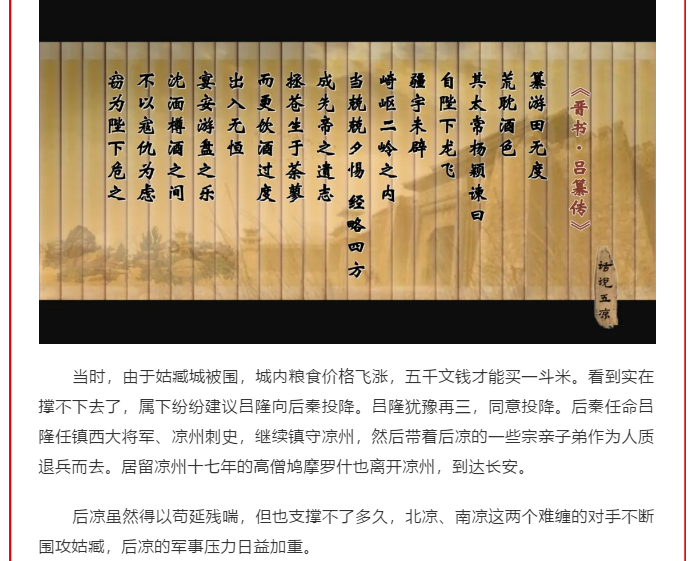 《晋书·吕纂传》
纂游田无度
荒耽酒色
其太常杨颖谏曰
自陛下龙飞
疆宇未辟
崎岖二岭之内
当兢兢夕惕 经略四方
成先帝之遗志
拯苍生于荼蓼
而更饮酒过度
出入无恒
宴安游盘之乐
沈湎樽酒之间
不以寇仇为虑
窃为陛下危之
话说五凉
当时，由于姑臧城被围，城内粮食价格飞涨，五千文钱才能买一斗米。看到实在
撑不下去了，属下纷纷建议吕隆向后秦投降。吕隆犹豫再三，同意投降。后秦任命吕
隆任镇西大将军、凉州刺史，继续镇守凉州，然后带着后凉的一些宗亲子弟作为人质
退兵而去。居留凉州十七年的高僧鸠摩罗什也离开凉州，到达长安。
后凉虽然得以苟延残喘，但也支撑不了多久，北凉、南凉这两个难缠的对手不断
围攻姑臧，后凉的军事压力日益加重。